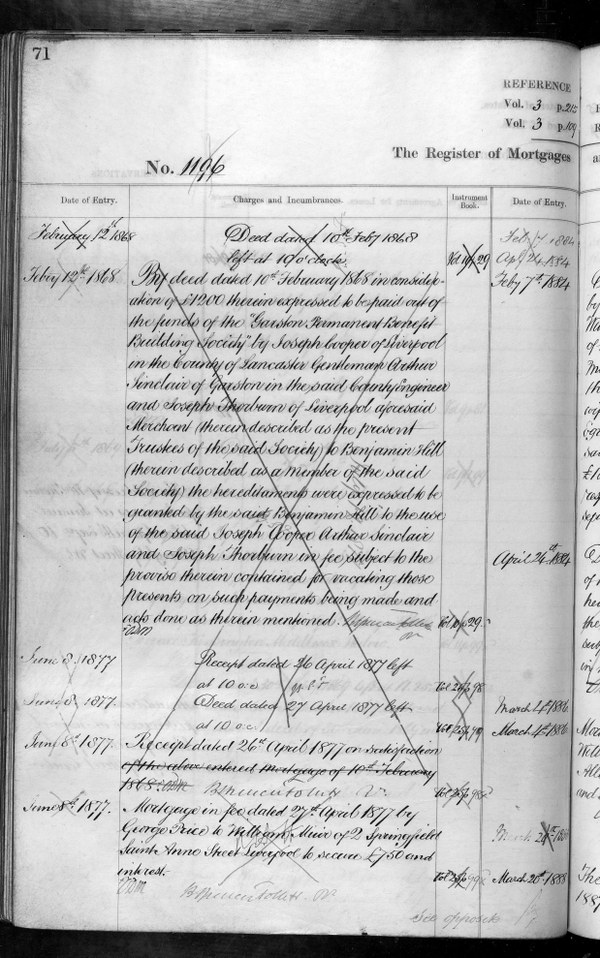 71
REFERENCE
Vol. 3 p. 215
Vol. 3 p. 109
The Register of Mortgages
No. 1196
Date of Entry. Charges and Incumbrances. Instrument Book. Date of Entry.
February 12th 1868 Deed dated 10th Feby 1868
left at 10 o'clock Vol 10 p 29
Feby 7 1884
Apl 24 1884
Feby 12th 1868 By deed dated 10th February 1868 in consider- Feby 7th 1884
ation of £1200 therein expressed to be paid out of
the funds of the "Garston Permanent Benefit
Building Society" by Joseph Cooper of Liverpool
in the County of Lancaster Gentleman Arthur
Sinclair of Garston in the said County Engineer
and Joseph Thorburn of Liverpool aforesaid
Merchant (therein described as the present
Trustees of the said Society) to Benjamin Hill
(therein described as a member of the said
Society) the hereditaments were expressed to be
granted by the said Benjamin Hill to the use
of the said Joseph Cooper Arthur Sinclair
and Joseph Thorburn in fee subject to the April 24th 1884
proviso therein contained for vacating those
presents on such payments being made and
acts done as therein mentioned. Vol 10 p 29
June 8, 1877 Receipt dated 26 April 1877 left
at 10 o.c. Vol 25 p 98
June 8, 1877. Deed dated 27 April 1877 left March 4th 1886
at 10 o.c. Vol 25 p 99 March 4th 1886
June 8th 1877. Receipt dated 26th April 1877 on satisfaction
of the above entered mortgage of 10th February
1868. Vol 25 p 98
June 8th 1877. Mortgage in fee dated 27th April 1877 by
George Price to William Muir of 2 Springfield
Saint Anne Street Liverpool to secure £750 and
interest. Vol 25 p 99 March 20th 1888
See opposite